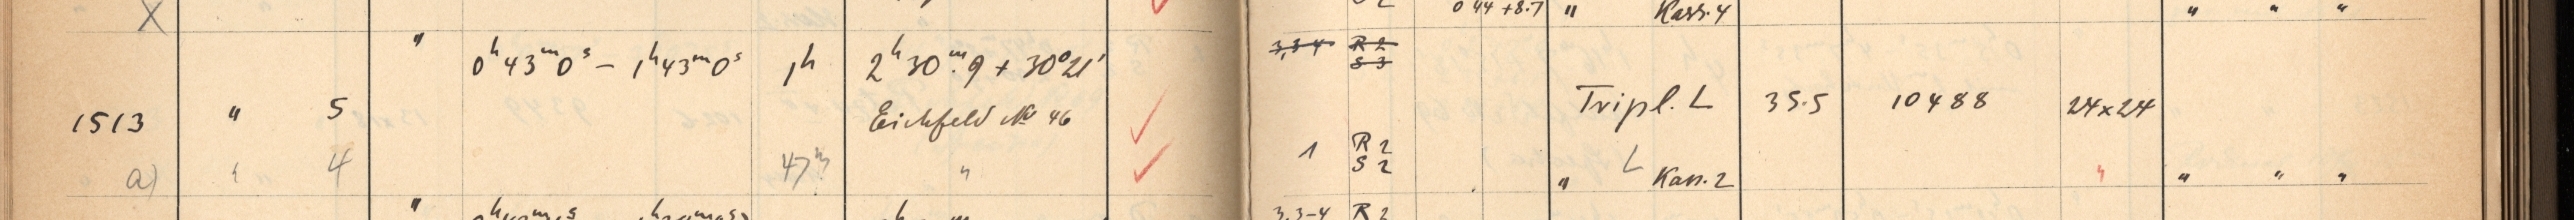 X 0 44 +8.7 " Kass. 4 " " "
" 0ʰ43ᵐ0ˢ – 1ʰ43ᵐ0ˢ 1ʰ 2ʰ30ᵐ.9 + 30°21' 3,3-4 R 2
S 3
1513 " 5 Eichfeld № 46 Tripl. L 35.5 10488 24x24
a) " 4 47ᵐ " 1 R 2 L
S 2 " Kass. 2 " " " "
" 3,3-4 R 2